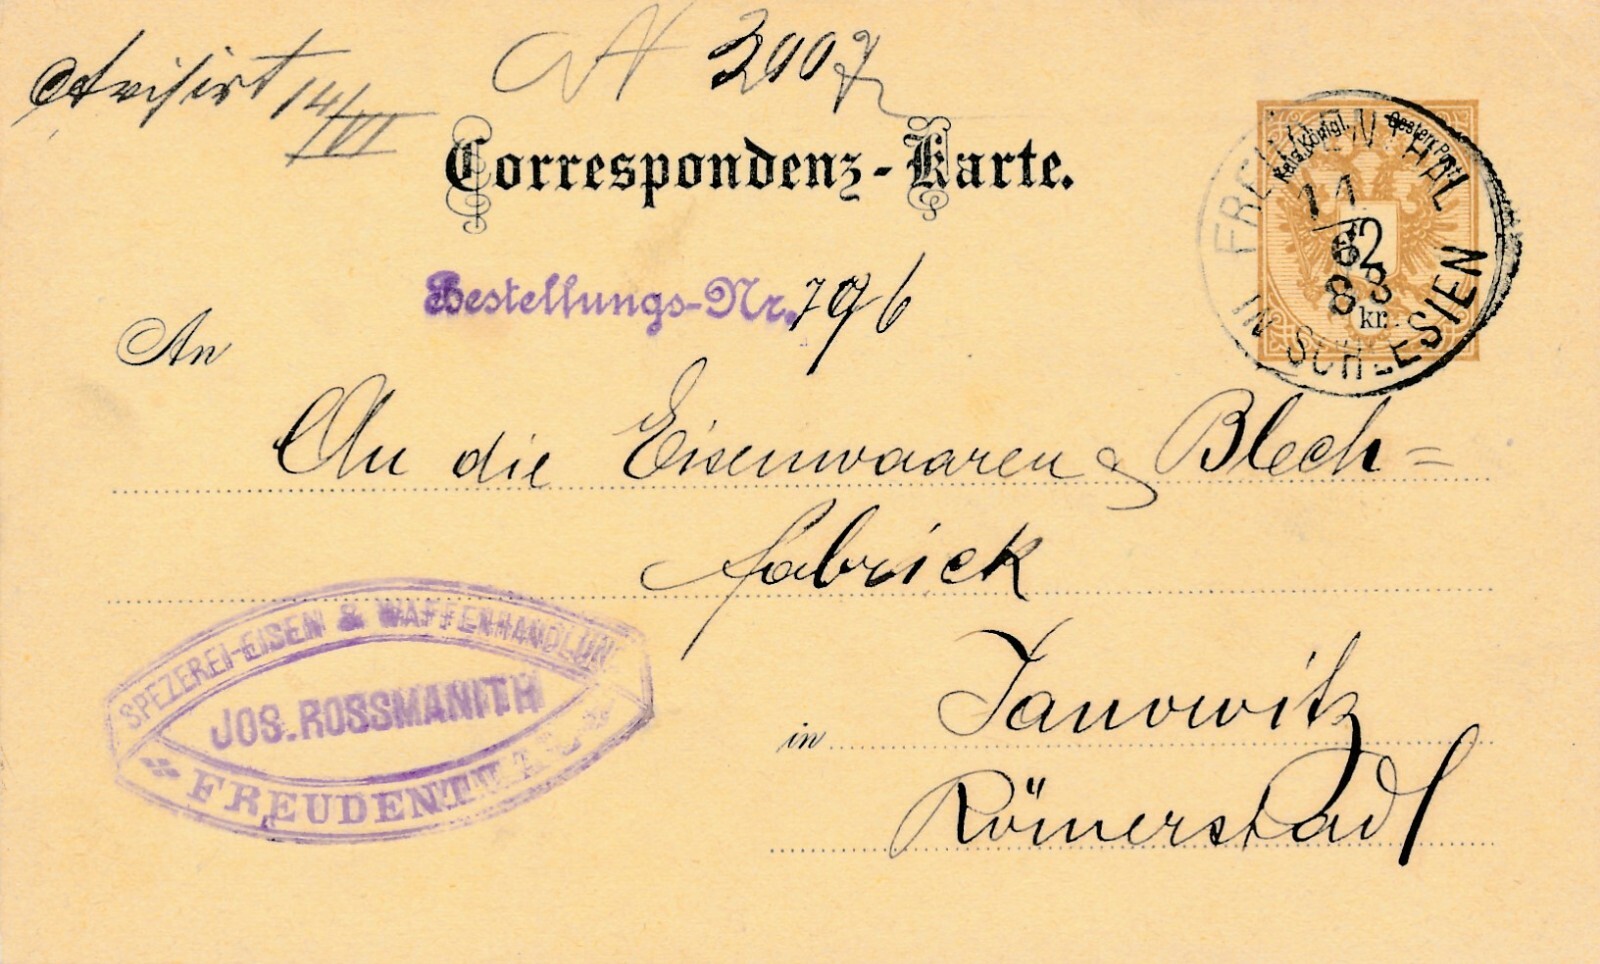 Avisirt 14/VI
3007
Correspondenz-Karte.
Kais. Königl. Oesterr. Post
2
kr.
FREUDENTHAL
14
6
88
IN SCHLESIEN
Bestellungs-Nr. 796
An
An die Eisenwaaren & Blech=
fabrick
SPEZEREI-EISEN & WAFFENHANDLUNG
JOS. ROSSMANITH
FREUDENTHAL
in Janowitz
Römerstadt